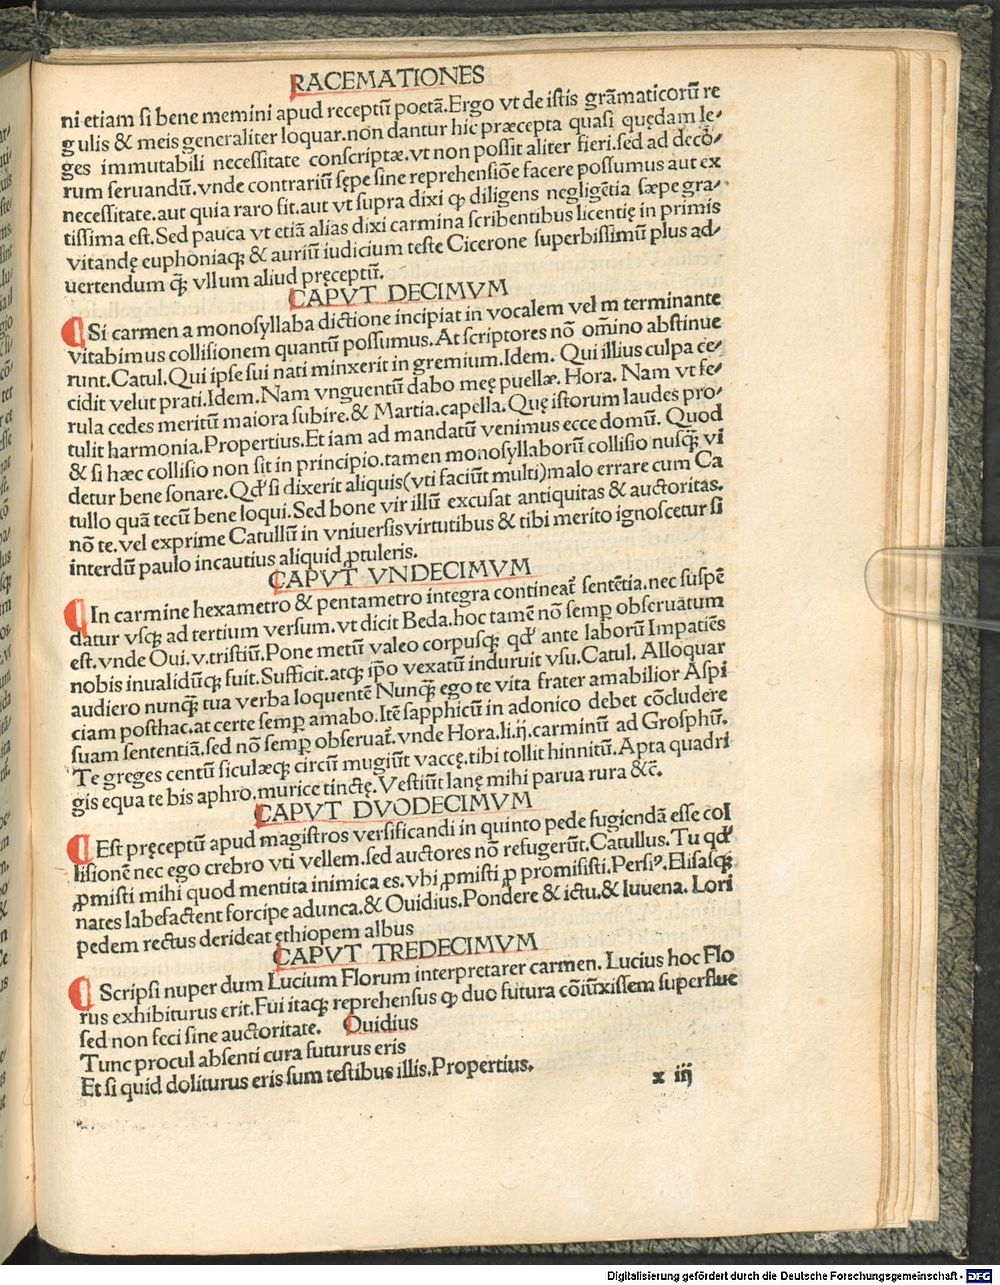 RACEMATIONES
ni etiam si bene memini apud receptũ poetã.Ergo vt de istis grãmaticorũ re
gulis & meis generaliter loquar.non dantur hic præcepta quasi quędam le⸗
ges immutabili necessitate conscriptæ.vt non possit aliter fieri.sed ad decō⸗
rum seruandũ.vnde contrariũ sępe sine reprehensiõe facere possumus aut ex
necessitate.aut quia raro fit.aut vt supra dixi ꝙ diligens negligẽtia sæpe gra⸗
tissima est.Sed pauca vt etiã alias dixi carmina scribentibus licentię in primis
vitandę euphoniaqꝫ & auriũ iudicium teste Cicerone superbissimũ plus ad⸗
uertendum q̃ꝫ vllum aliud pręceptũ.
CAPVT DECIMVM
Si carmen a monosyllaba dictione incipiat in vocalem vel m terminante
vitabimus collisionem quantũ possumus.At scriptores nõ omino abstinue
runt.Catul.Qui ipse sui nati minxerit in gremium.Idem. Qui illius culpa ce⸗
cidit velut prati.Idem.Nam vnguentũ dabo meę puellæ.Hora. Nam vt fe⸗
rula cedes meritũ maiora subire.& Martia.capella.Quę istorum laudes pro⸗
tulit harmonia.Propertius.Et iam ad mandatũ venimus ecce domũ. Quod
& si hæc collisio non sit in principio.tamen monosyllaborũ collisio nusq̃ꝫ vi
detur bene sonare.Qđ si dixerit aliquis(vti faciũt multi)malo errare cum Ca
tullo quã tecũ bene loqui.Sed bone vir illũ excusat antiquitas & auctoritas.
nõ te.vel exprime Catullũ in vniuersis virtutibus & tibi merito ignoscetur si
interdũ paulo incautius aliquid ꝓtuleris.
CAPVT VNDECIMVM
In carmine hexametro & pentametro integra contineat̃ sentẽtia.nec suspẽ
datur vsqꝫ ad tertium versum.vt dicit Beda.hoc tamẽ nõ semꝑ obseruatum
est.vnde Oui.v.tristiũ.Pone metũ valeo corpusqꝫ qđ ante laborũ Impatiẽs
nobis inualidũqꝫ fuit.Sufficit.atqꝫ ip̃o vexatũ induruit vsu.Catul. Alloquar
audiero nunq̃ꝫ tua verba loquentẽ Nunq̃ꝫ ego te vita frater amabilior Aspi
ciam posthac.at certe semꝑ amabo.Itẽ sapphicũ in adonico debet cõcludere
suam sententiã.sed nõ semꝑ obseruat̃.vnde Hora.li.ij.carminũ ad Grosphũ.
Te greges centũ siculæqꝫ circũ mugiũt vaccę.tibi tollit hinnitũ.Apta quadri
gis equa te bis aphro.murice tinctę.Vestiũt lanę mihi parua rura &c̃.
CAPVT DVODECIMVM
Est pręceptũ apud magistros versificandi in quinto pede fugiendã esse col
lisionẽ nec ego crebro vti vellem.sed auctores nõ refugerũt.Catullus.Tu qđ
ꝓmisti mihi quod mentita inimica es.vbi ꝓmisti ꝓ promisisti.Persiꝰ.Elisasqꝫ
nates labefactent forcipe adunca.& Ouidius.Pondere & ictu.& Iuuena. Lori
pedem rectus derideat ęthiopem albus
CAPVT TREDECIMVM
Scripsi nuper dum Lucium Florum interpretarer carmen. Lucius hoc Flo
rus exhibiturus erit.Fui itaqꝫ reprehensus ꝙ duo futura cõiũxissem superflue
sed non feci sine auctoritate. Ouidius
Tunc procul absenti cura futurus eris
Et si quid doliturus eris sum testibus illis.Propertius.
x iij
Digitalisierung gefördert durch die Deutsche Forschungsgemeinschaft - DFG